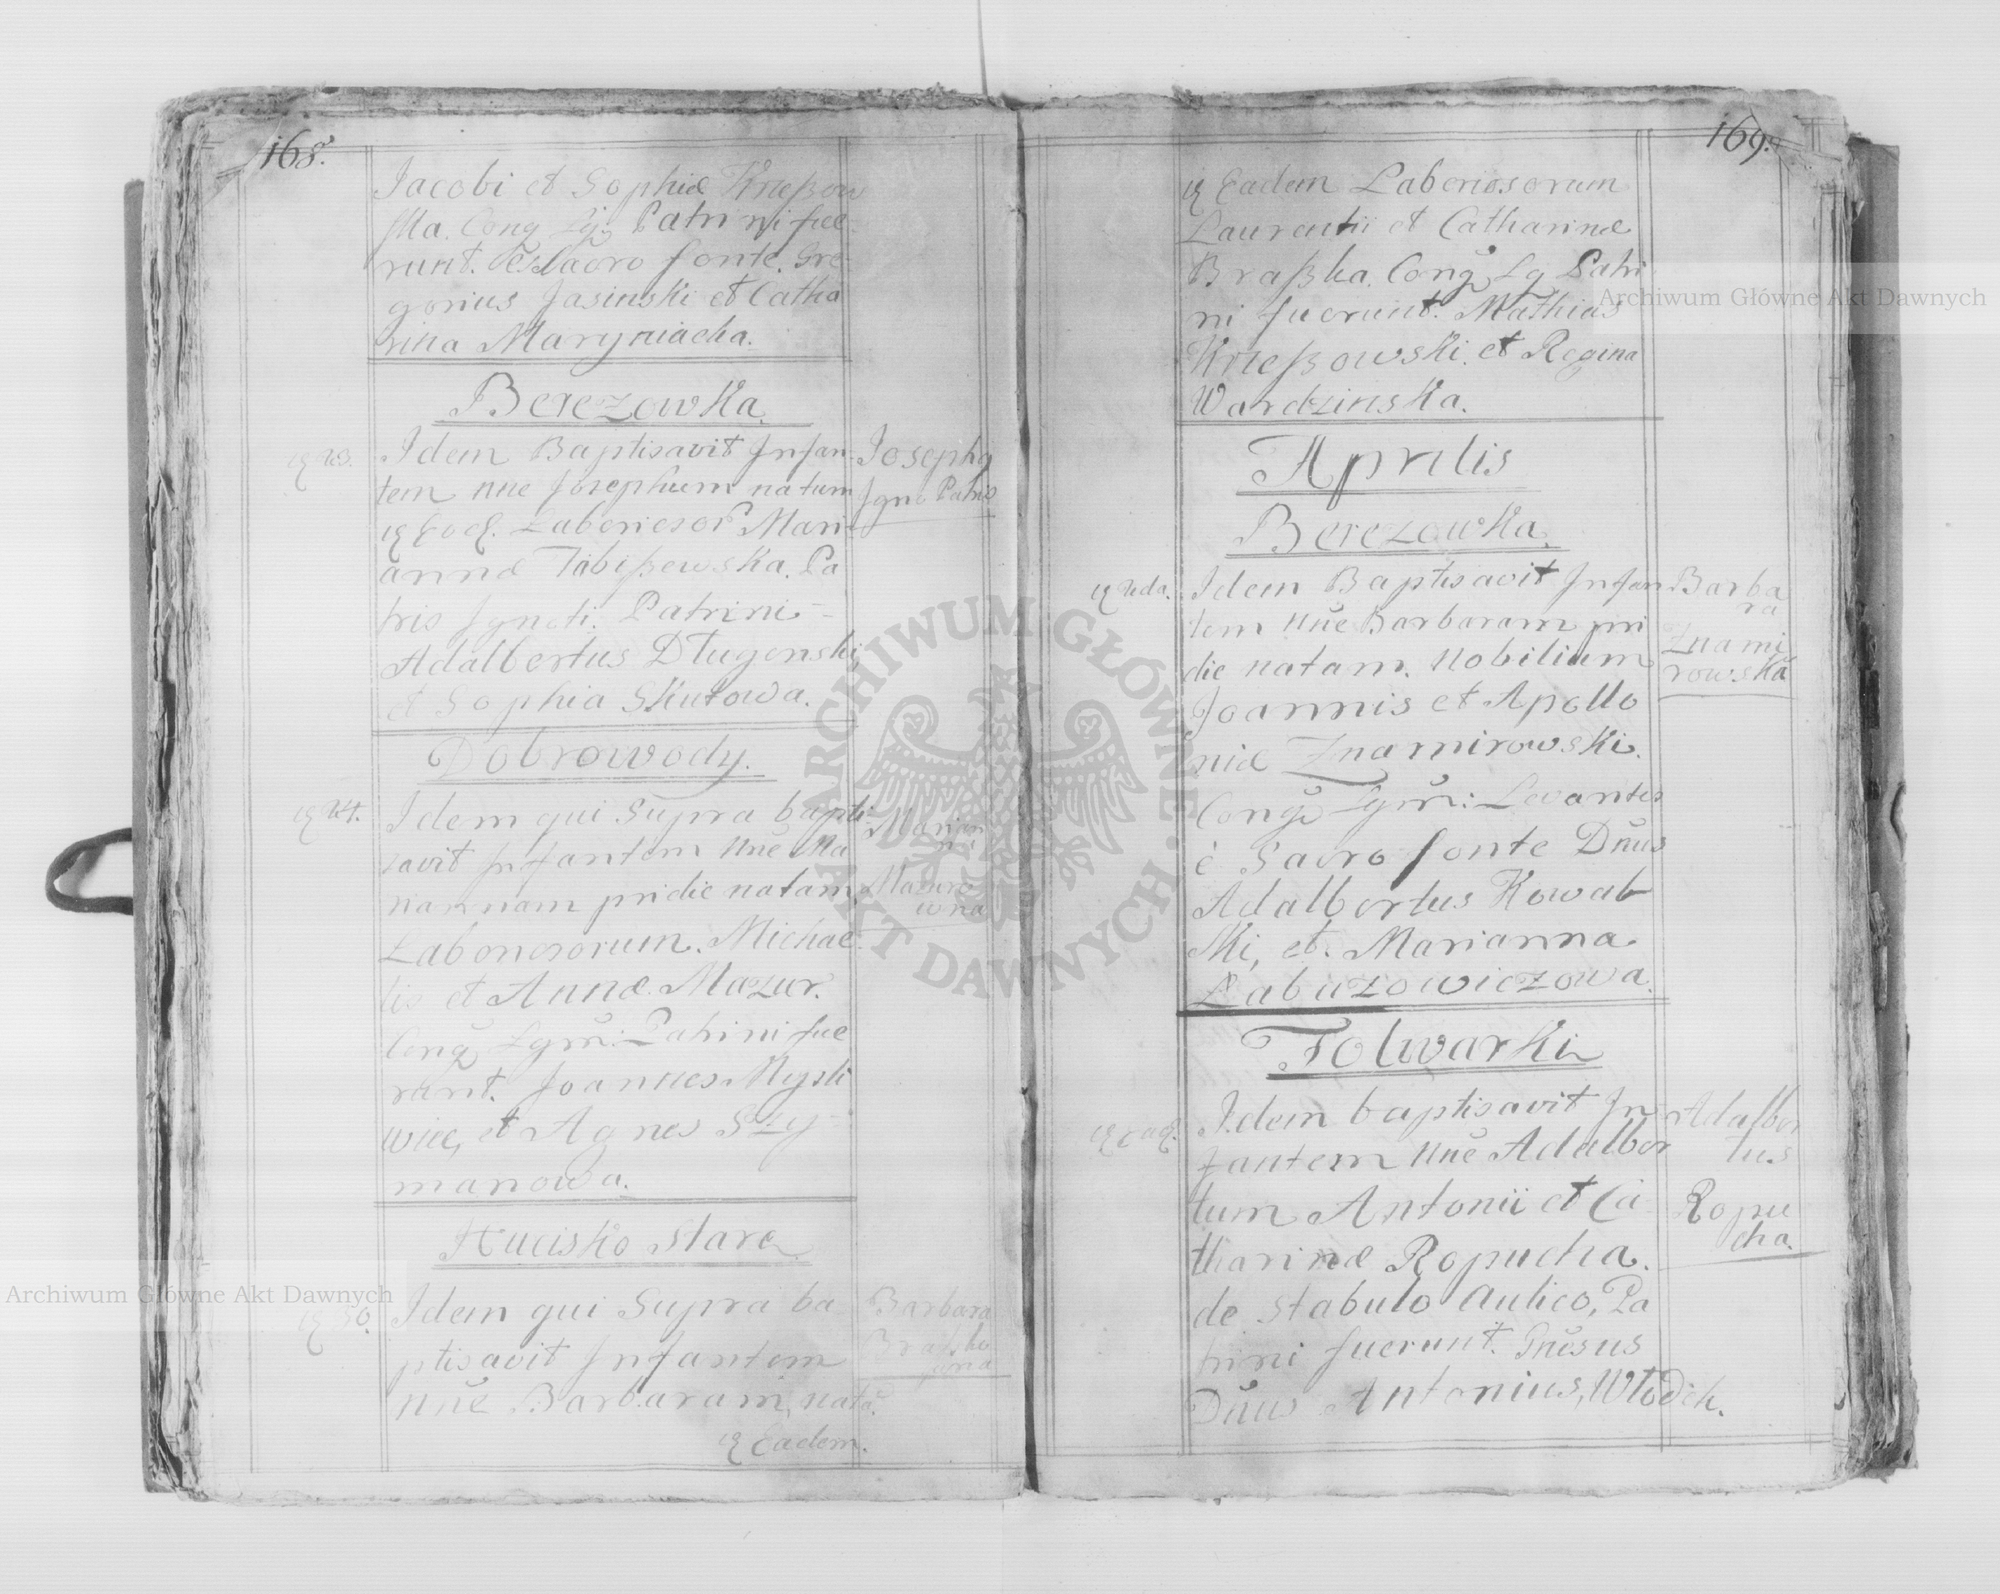 168.
Jacobi et Sophiæ Knießow
ska. Cong Lg. Patrini fue-
runt. è Sacro fonte. Gre-
gorius Jasinski et Catha
rina Maryniacha.
Berezowka.
23. Idem Baptisavit Infan-
tem nñe Josephum natum
Eod. Laboriosor Mari-
annæ Tabißewska. Pa
tris Ignoti. Patrini-
Adalbertus Długonski,
et Sophia Skutowa.
Josephq
Igno Patris
Dobrowody.
24. Idem qui Supra bapti-
savit Infantem nñe Ma
riannam pridie natam
Laboriosorum. Michae-
lis et Annæ Mazur.
Cong Lgm: Patrini fue
runt. Joannes Mysli
wiec, et Agnes Szy-
manowa.
Marian
na
Mazuro
wna
Hucisko Stare
30. Idem qui Supra ba-
ptisavit Infantem
nñe Barbaram, nata.
Eadem.
Barbara
169.
Eadem Laboriosorum
Laurentii et Catharinæ
Braßka. Cong Lg Patri
ni fuerunt. Mathias
Knießowski. et Regina
Wardzinska.
Aprilis
Berezowka.
2da. Idem Baptisavit Infan
tem nñe Barbaram pri
die natam. Nobilium
Joannis et Apollo
niæ Znamirowski.
Cong Lgm: Levantes
è Sacro fonte Dñus
Adalbertus Kowal-
ski, et. Marianna
Łabuzowiczowa.
Barba
ra
Znami
rowska
Folwarki
Ead. Idem baptisavit In-
fantem nñe Adalber
tum Antonii et Ca-
tharinæ Ropucha.
de Stabulo Aulico, Pa
trini fuerunt.
Dñus Antonius, Włodek.
Adalber
tus
Ropu
cha.
Archiwum Główne Akt Dawnych
Archiwum Główne Akt Dawnych
ARCHIWUM GŁÓWNE AKT DAWNYCH